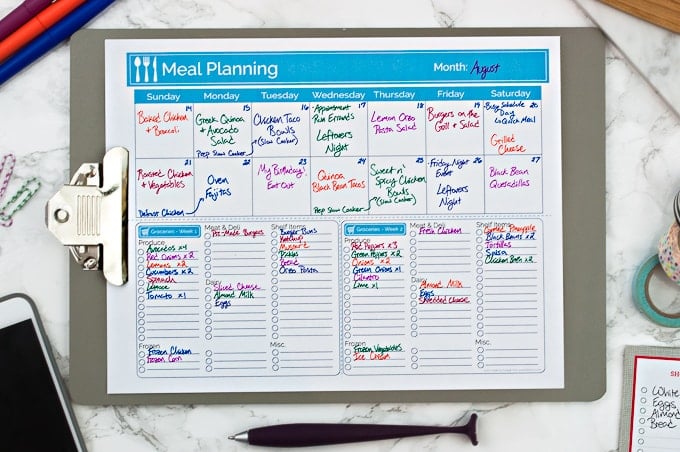 Meal Planning
Month: August
Sunday Monday Tuesday Wednesday Thursday Friday Saturday
14
Baked Chicken
+ Broccoli
15
Greek Quinoa
+ Avocado
Salad
Prep Slow Cooker
16
Chicken Taco
Bowls
(Slow Cooker)
17
-Appointment
Run Errands
Leftovers
Night
18
Lemon Orzo
Pasta Salad
19
Burgers on the
Grill + Salad
20
Busy Schedule
Day
Quick Meal
Grilled
Cheese
21
Roasted Chicken
+ Vegetables
Defrost Chicken
22
Oven
Fajitas
23
My Birthday!
Eat Out
24
Quinoa
Black Bean Tacos
Prep Slow Cooker
25
Sweet n'
Spicy Chicken
Bowls
(Slow Cooker)
26
-Friday Night
Event
Leftovers
Night
27
Black Bean
Quesadillas
Groceries - Week 1
Produce
Avocados x4
Red Onions x2
Lemons x2
Cucumbers x2
Spinach
Lettuce
Tomato x1
Frozen
Frozen Chicken
Frozen Corn
Meat & Deli
Pre-Made Burgers
Dairy
Sliced Cheese
Almond Milk
Eggs
Shelf Items
Burger Buns
Ketchup
Mustard
Pickles
Bread
Orzo Pasta
Misc.
Groceries - Week 2
Produce
Red Peppers x3
Green Peppers x2
Onions x2
Green Onions x1
Cilantro
Lime x1
Frozen
Frozen Vegetables
Ice Cream
Meat & Deli
Fresh Chicken
Dairy
Almond Milk
Eggs
Shredded Cheese
Shelf Items
Pineapple
Black Beans x2
Tortillas
Misc.
SH
White
Eggs
Almond
Bread